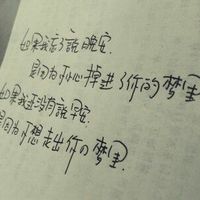 如果我忘了說晚安.
是因为不小心掉進了你的梦里.
如果我还没有說早安.
是因为不想走出你の梦里.